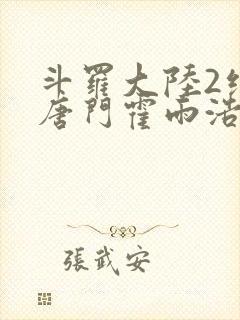 斗羅大陸2
唐門霍雨浩
張武安